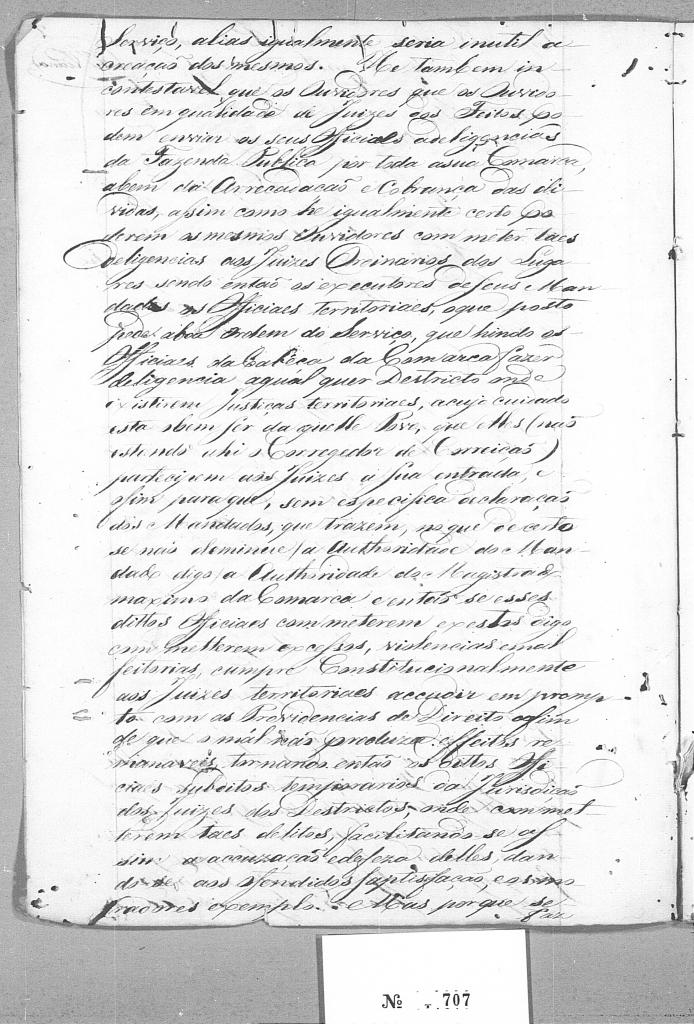 Serviço, alias igualmente seria inutil a
creaçaõ dos mesmos. He tambem in-
contestavel que os Ouvidores, que os Ouvido-
res em qualidade de Juizes dos Feitos po-
dem enviar os seus Officiaes a deligencias
da Fazenda Publica por toda a sua Comarca,
abem da Arrecadaçaõ e Cobrança das di-
vidas, assim como he igualmente certo po-
derem os mesmos Ouvidores commeter taes
deligencias aos Juizes Ordinarios dos Luga-
res sendo entaõ os executores de seus Man-
dados os Officiaes territoriaes, o que posto
pede aboa ordem do Serviço, que hindo os
Officiaes da Cabeça da Comarca fazer
deligencia aqualquer Destricto onde
existirem Justiças territoriaes, acujo cuidado
está o bem ser da quelle Povo, que elles (naõ
estando ahi o Corregedor de Correiçaõ)
partecipem aos Juizes a sua entrada, e
o fim para que, sem especifica declaraçaõ
dos Mandados, que trazem, no que de certo
se naõ deminue a Authoridade do Man-
dado digo a Authoridade do Magistrado
maximo da Comarca e entaõ se esses
dittos Officiaes commeterem exestos digo
commetterem excessos, violencias e mal
feitorias, cumpre Constitucionalmente
aos Juizes territoriaes accudir em promp-
to com as Providencias de Direito afim
de que o mal naõ produza effeitos re-
manaveis, tornando entaõ os dittos Offi-
ciaes subditos temporarios da Jurisdicaõ
dos Juizes dos Destrictos, onde commet-
terem taes delitos, facilitando-se as-
sim a accuzaçaõ e defeza delles, dan-
do-se aos offendidos satisfaçaõ, e aos mo-
radores exemplo. Mas porque se
faz
Nº 707